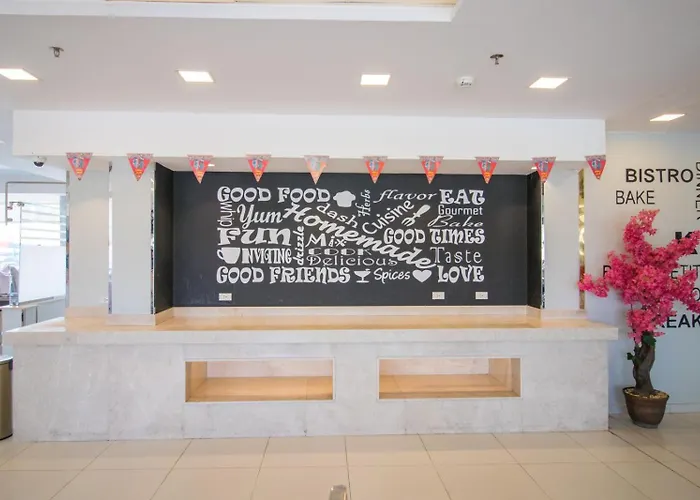 GOOD FOOD
flavor
EAT
Herbs
dash
Cuisine
Gourmet
Yum
Homemade
Bake
FUN
drizzle
Mix
GOOD TIMES
COOK
INVITING
Delicious
Taste
GOOD FRIENDS
Spices
LOVE
BISTRO
BAKE